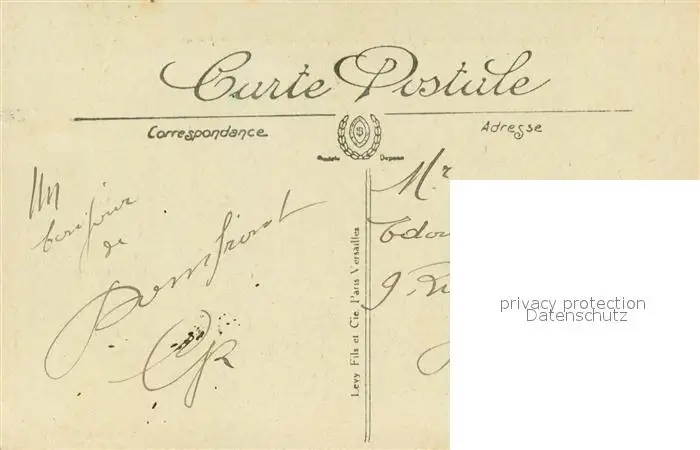 Carte Postale
Correspondance
Adresse
Modèle Déposé
Un
bonjour
de
Mr
9 Ru
Levy Fils et Cie, Paris Versailles
privacy protection
Datenschutz